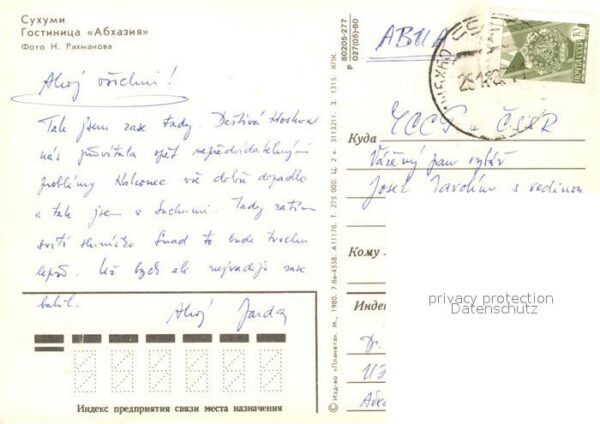 Сухуми
Гостиница «Абхазия»
Фото Н. Рахманова
Ahoj všichni!
Tak jsem zase tady. Deštivá Moskva
nás přivítala opět nepředvídatelnými
problémy. Nakonec vše dobře dopadlo
a tak jsem v Suchumi. Tady zatím
svítí sluníčko Snad to bude trochu
lepší. Už bych ale nejraději zase
balil.
Ahoj Jarda
Индекс предприятия связи места назначения
Р 80205-277
027(05)-80 КПК.
© Изд-во «Планета». М., 1980. 7.8а-4538. А11178. Т. 275 000. Ц. 2 к. 3113211. З. 1315.
АВИА
ПОЧТА СССР
10
Куда ЧССР - ČSSR
Vážený pan
Josef s rodinou
Кому
Индекс
privacy protection
Datenschutz
Dr.